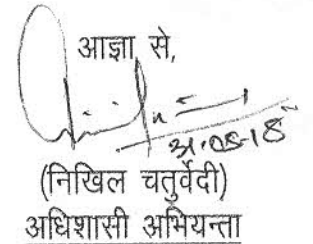 आज्ञा से,
31.08.18
(निखिल चतुर्वेदी)
अधिशासी अभियन्ता